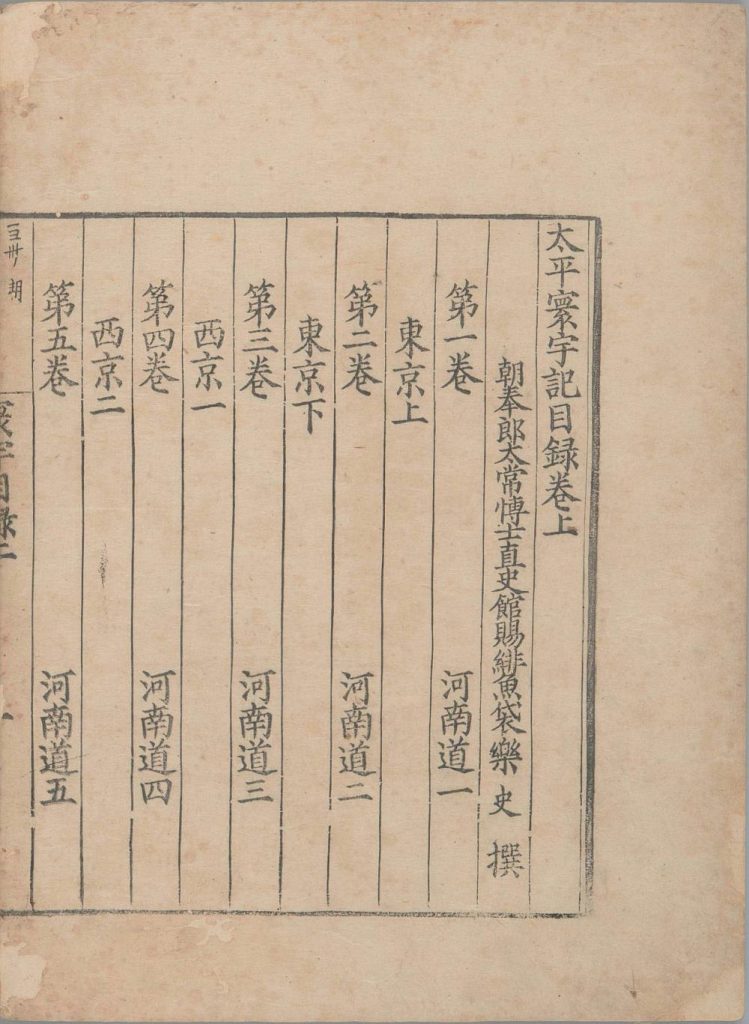 太平寰宇記目録卷上
朝奉郎太常博士直史館賜緋魚袋樂 史 撰
第一卷 河南道一
東京上
第二卷 河南道二
東京下
第三卷 河南道三
西京一
第四卷 河南道四
西京二
第五卷 河南道五
寰宇目録上